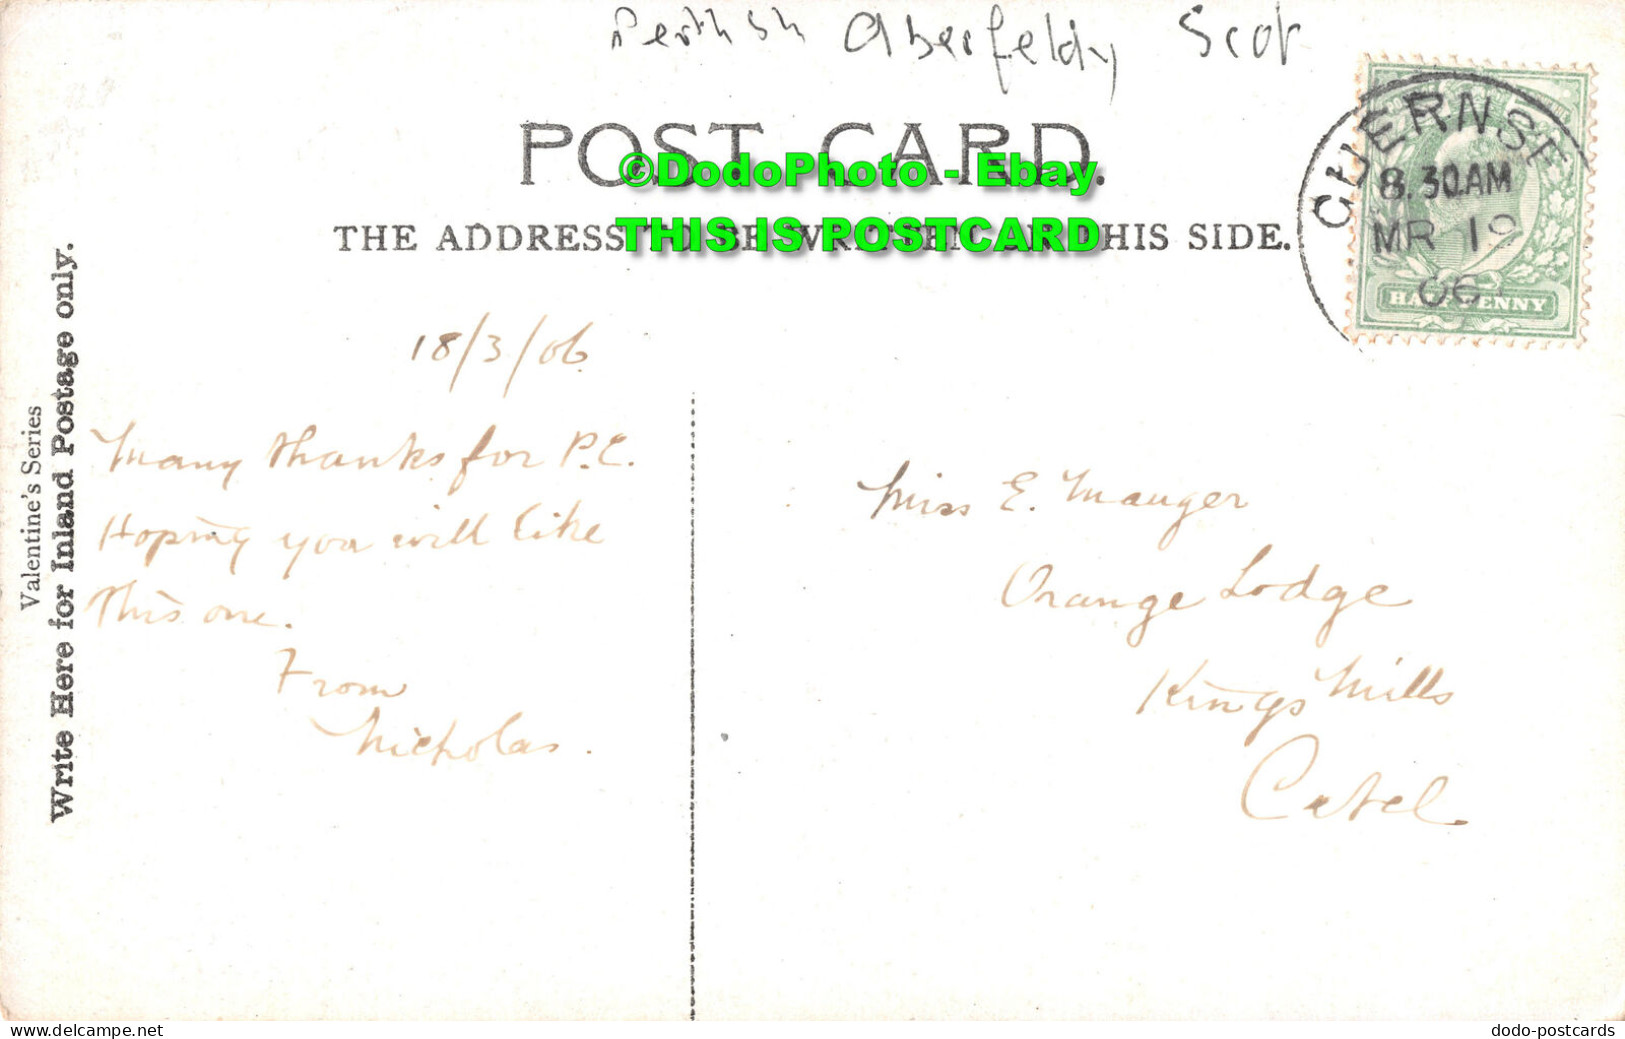 Perthsh Aberfeldy Scot
POST CARD.
©DodoPhoto - Ebay
THE ADDRESS TO BE WRITTEN ON THIS SIDE.
THIS IS POSTCARD
GUERNSE
8.30AM
MR 19
06
HALFPENNY
Valentine's Series
Write Here for Inland Postage only.
18/3/06
Many thanks for P.C.
Hoping you will like
this one.
From
Nicholas.
Miss E. Mauger
Orange Lodge
Kings Mills
Catel.
www.delcampe.net
dodo-postcards